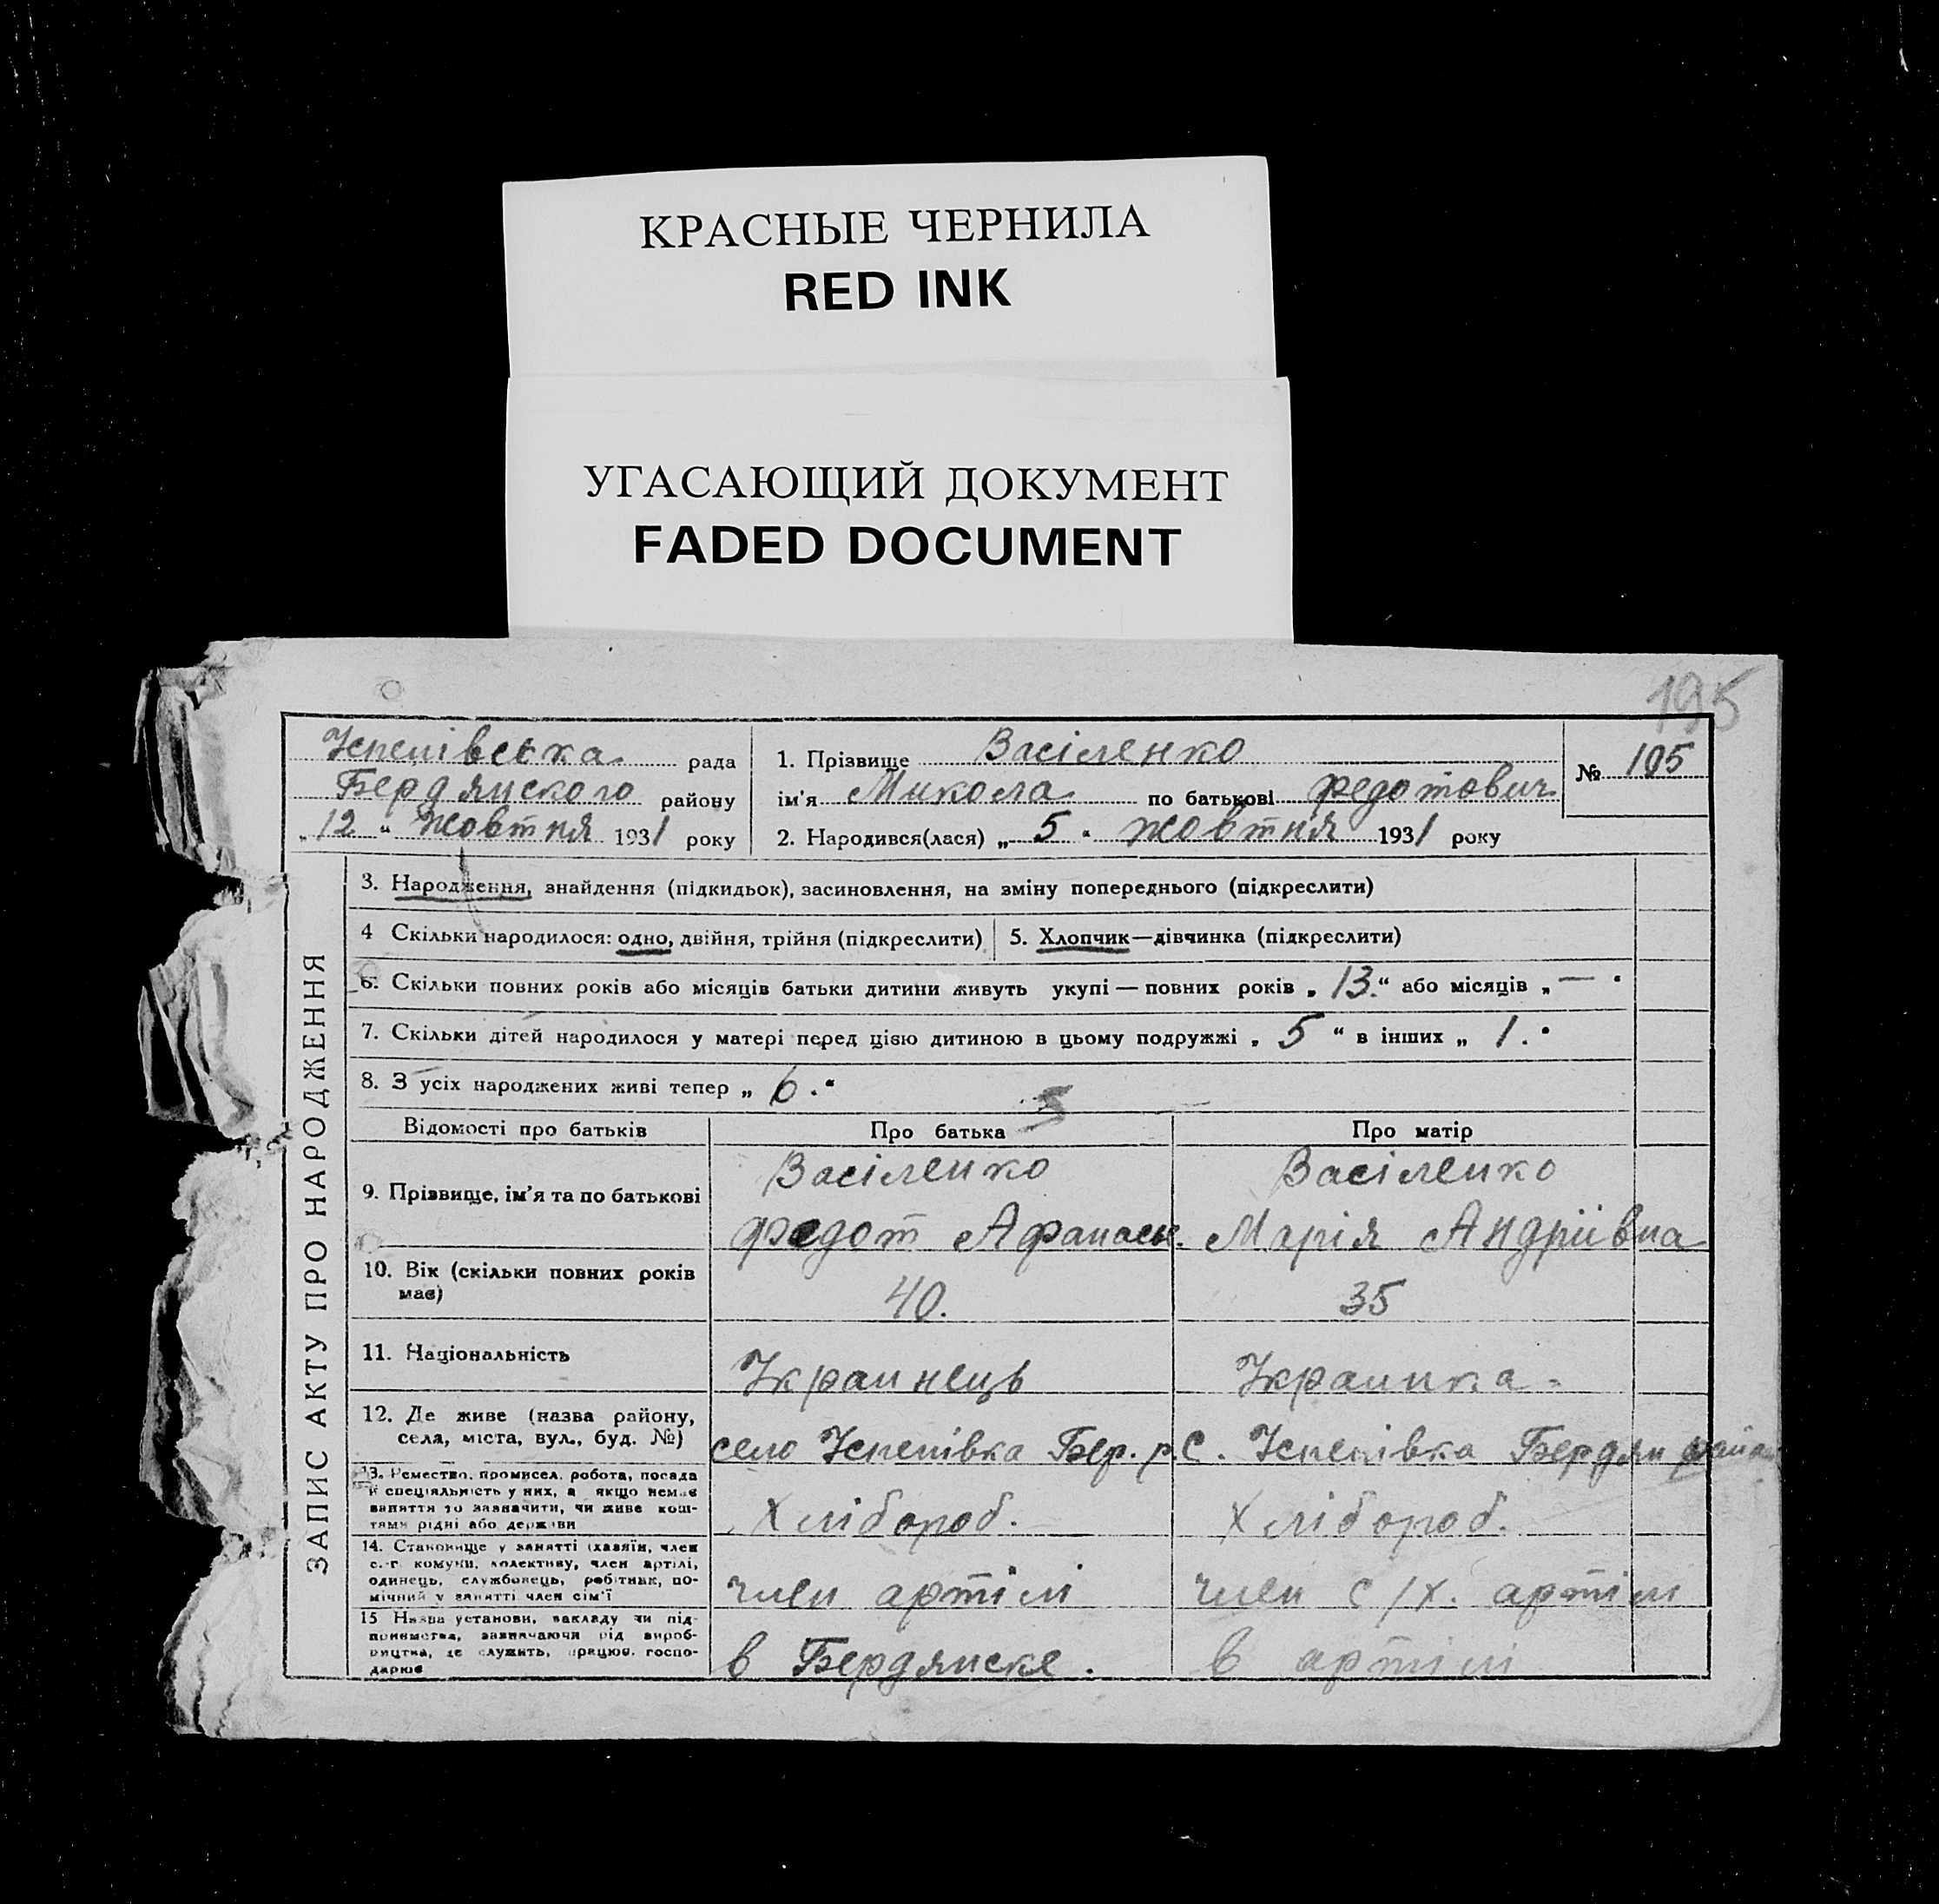 КРАСНЫЕ ЧЕРНИЛА
RED INK
УГАСАЮЩИЙ ДОКУМЕНТ
FADED DOCUMENT
195
Успенівська рада
Бердянского району
„12" жовтня 1931 року
1. Прізвище Васіленко
ім'я Микола по батькові Федотович
2. Народився(лася) „5" жовтня 1931 року
№ 195
ЗАПИС АКТУ ПРО НАРОДЖЕННЯ
3. Народження, знайдення (підкидьок), засиновлення, на зміну попереднього (підкреслити)
4 Скільки народилося: одно, двійня, трійня (підкреслити) 5. Хлопчик—дівчинка (підкреслити)
6. Скільки повних років або місяців батьки дитини живуть укупі — повних років „13." або місяців „—"
7. Скільки дітей народилося у матері перед цією дитиною в цьому подружжі „5" в інших „1."
8. З усіх народжених живі тепер „6."
Відомості про батьків Про батька Про матір
9. Прізвище, ім'я та по батькові
Васіленко Васіленко
Федот Афанасьє. Марія Андріївна
10. Вік (скільки повних років
має)
40. 35
11. Національність
Украинець Украинка
12. Де живе (назва району,
села, міста, вул., буд. №)
село Успенівка Бер. р. С. Успенівка Бердян район
13. Ремество, промисел, робота, посада
й спеціяльність у них, а якщо немає
заняття то зазначити, чи живе кош-
тами рідні або держави
Хлібороб. Хлібороб.
14. Становище у занятті (хазяїн, член
с.-г. комуни, колективу, член артілі,
одинець, службовець, робітник, по-
мічний у занятті член сім'ї
член артілі член с/х. артіли
15 Назва установи, закладу чи під-
приємства, зазначаючи рід вироб-
ництва, де служить, працює, госпо-
дарює
в Бердянске. в артілі